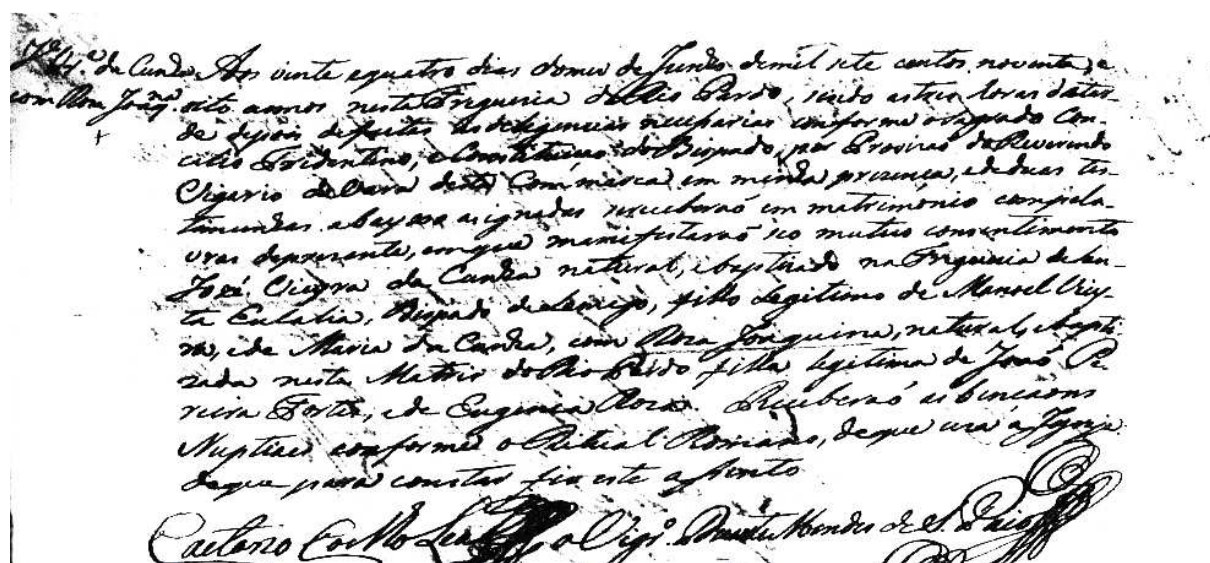 Jᵉ Vʳᵃ da Cunha Aos vinte equatro dias domes de Junho demil sete centos noventa, e
com Roza Joaqⁿᵃ oito annos nesta Freguezia do Rio Pardo, sendo astres horas datar-
de depois defeitas as deligencias necessarias conforme osagrado Con-
cilio Tridentino, e Constituiçaõ do Bispado, por Provizaõ do Reverendo
Vigario da Vara desta Commarca em minha prezença, ededuas tes-
temunhas abayxo asignadas receberaõ em matrimonio compala-
vras deprezente, emque manifestaraõ seo mutuo consentimento
Jozé Vieyra da Cunha natural, ebaptizado na Freguezia deSan-
ta Eulalia, Bispado deLamego, filho Legitimo de Manoel Viey-
ra, ede Maria da Cunha, com Roza Joaquina, natural, ebapti-
zada nesta Matris do Rio Pardo filha legitima de Joaõ Pe-
reira Fortes, ede Eugenia Roza. Receberaõ asbençaons
Nupciaes conforme o Ritual Romano, deque uza a Igreja
deque para constar fiz este assento
Caetano Coelho Leal o Vigrº. Mendes de S. Paio